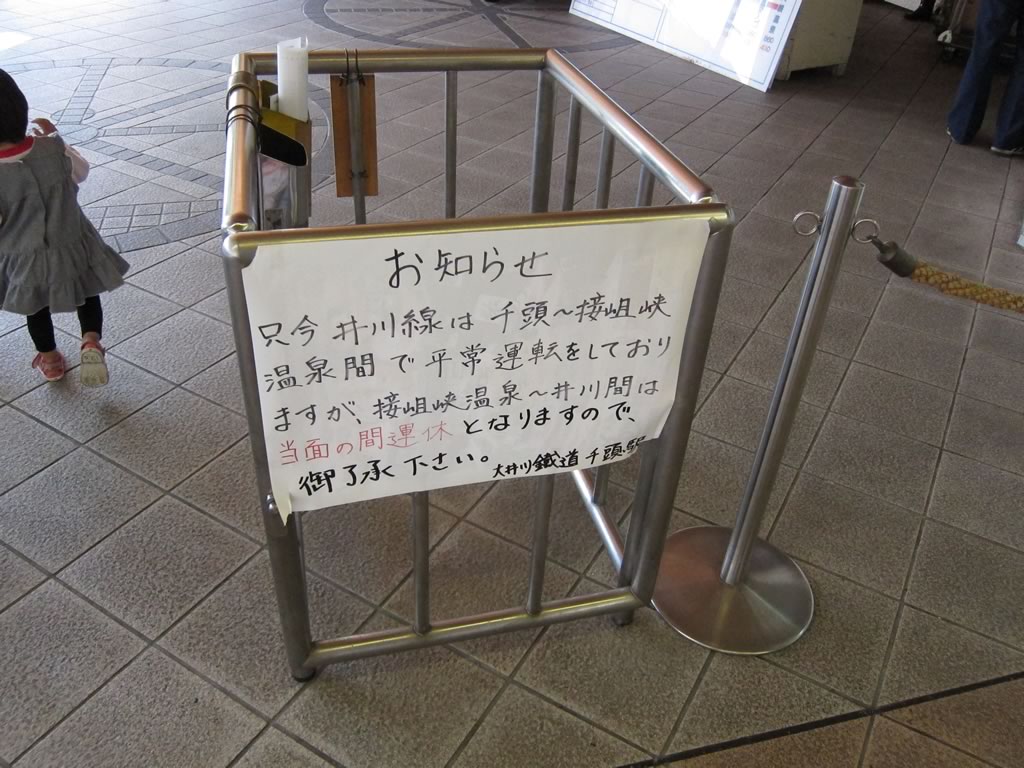 お知らせ
只今井川線は千頭〜接岨峡
温泉間で平常運転をしており
ますが、接岨峡温泉〜井川間は
当面の間運休となりますので、
御了承下さい。 大井川鐵道千頭駅